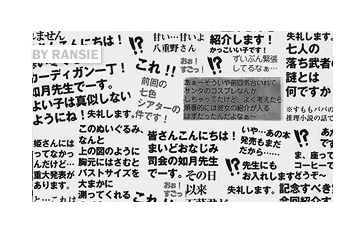 れません
んにちは！
BY RANSIE
カーディガン一丁！
如月先生でーす。
よい子は真似しない
ようにね！
失礼します。
これ!!
前回の
七色
シアターの
件です！
甘い…甘いよ
八重野さん
!?
おぉ！
すごっ！
紹介します！
かっこいい子です！
ずいぶん緊張
してるなぁ…
あぁーそういや前回気合いれて
サンタのコスプレなんか
しちゃってたけど、よく考えたら
順番的には彼女の紹介が入る
はずだったんだよなぁ～
失礼します。
七人の
落ち武者の
謎とは
何ですか
このぬいぐるみ、
なんと
上の図のように
胸元にはさむと
バストサイズを
大まかに
測ってくれる
姫さんには
ってなかっ
んだけど…
重大発表が
あります。
皆さんこんにちは！
まいどおなじみ
司会の如月先生
でーす。
その日
以来
おぉ！
すごっ！
いや…あの本
発売もまだ
だから……
!?
先生にも
お入れしますね
失礼します。
どうぞ
ま、座って
コーヒーで
どうぞ～
記念すべき